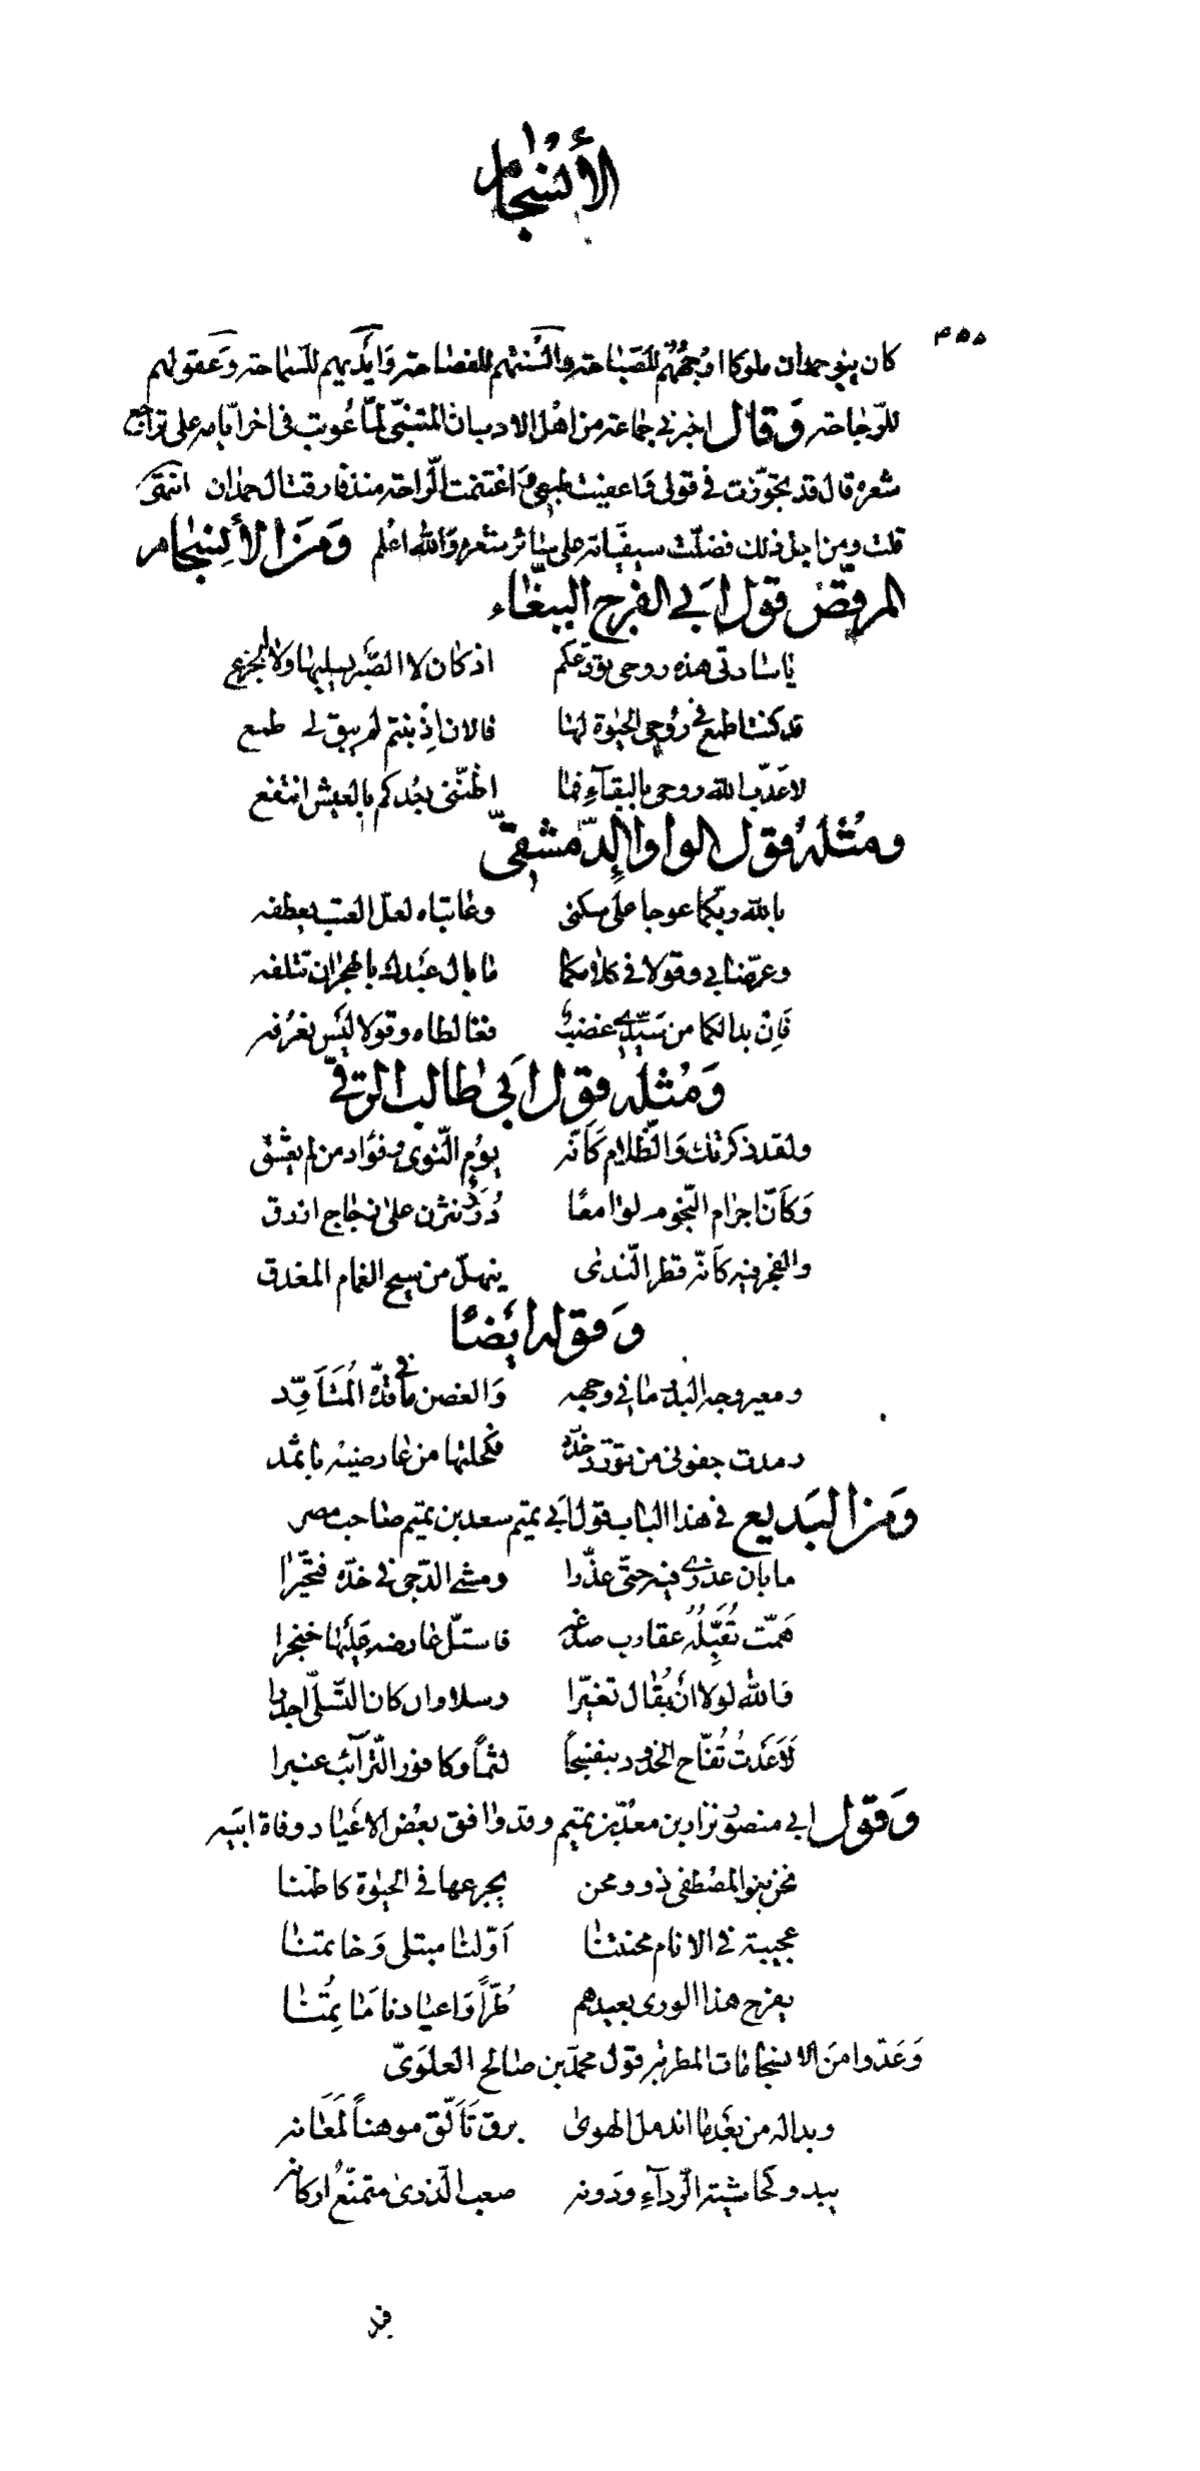 الأنسجام
٣٥٥
كان بنو حمدان ملوكا اوجههم للصباحة والسنتهم للفصاحة وايديهم للسماحة وعقولهم
للرجاحة وقال اخبرني جماعة من اهل الادب ان المتنبي لما عوتب في اخر ايامه على تراجع
شعره قال قد تجوزت في قولي واعفيت طبعي واغتنمت الراحة منذ فارقت ال حمدان انتهى
قلت ومن اجل ذلك فضلت سيفياته على سائر شعره والله اعلم ومن الأنسجام
المرقص قول ابي الفرج الببغاء
يا سادتي هذه روحي تودعكم اذ كان لا الصبر يسليها ولا الجزع
قد كنت اطمع في روح الحيوة لها فالان اذ بنتم لم يبق لي طمع
لا عذب الله روحي بالبقاء فما اظنني بعدكم بالعيش انتفع
ومثله قول الواوا الدمشقي
بالله ربكما عوجا على سكني وعاتباه لعل العتب يعطفه
وعرضا بي وقولا في كلامكما ما بال عبدك بالهجران تتلفه
فان بدا لكما من سيدي غضب فغالطاه وقولا ليس نعرفه
ومثله قول ابي طالب الرقي
ولقد ذكرتك والظلام كأنه يوم النوى وفؤاد من لم يعشق
وكأن اجرام النجوم لوامعا درر نثرن على زجاج ازرق
والفجر فيه كأنه قطر الندى ينهل من سيح الغمام المغدق
وقوله ايضا
ومعير وجه البدر ما في وجهه والغصن ما في قده المتأود
رمدت جفوني من تورد خده فكحلتها من عارضيه باثمد
ومن البديع في هذا الباب قول ابي تميم سعد بن تميم صاحب مصر
ما بان عذري فيه حتى عذرا ومشى الدجى في خده فتحيرا
همت تقبله عقارب صدغه فاستل عارضه عليها خنجرا
والله لولا ان يقال تغيرا وسلا وان كان التسلي اجدرا
لأعدت تفاح الخدود بنفسجا لثما وكافور الترائب عنبرا
وقول ابي منصور نزار بن معد بن تميم وقد وافق بعض الاعياد وفاة ابيه
نحن بنو المصطفى ذوو محن يجرعها في الحيوة كاظمنا
عجيبة في الانام محنتنا اولنا مبتلى وخاتمتنا
يفرح هذا الورى بعيدهم طرا واعيادنا مآتمنا
وعدوا من الانسجامات المطربة قول محمد بن صالح العلوي
وبدا له من بعد ما اندمل الهوى برق تألق موهنا لمعانه
يبدو كحاشية الرداء ودونه صعب الذرى متمنع اركانه